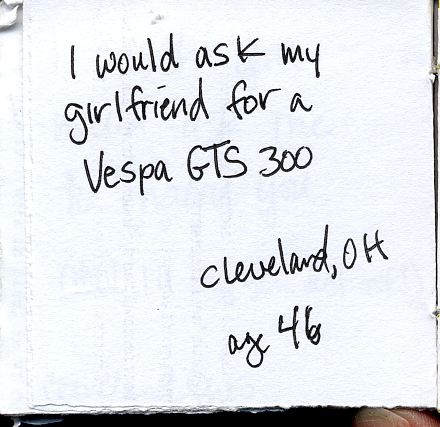 I would ask my
girlfriend for a
Vespa GTS 300
cleveland, OH
age 46